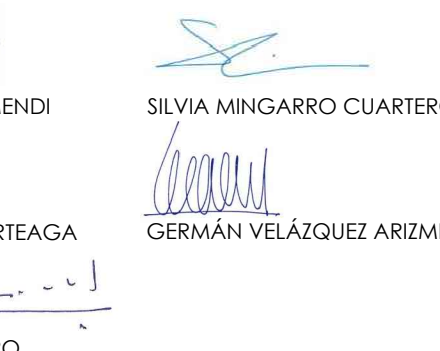 MENDI SILVIA MINGARRO CUARTERO
RTEAGA GERMÁN VELÁZQUEZ ARIZM
RO